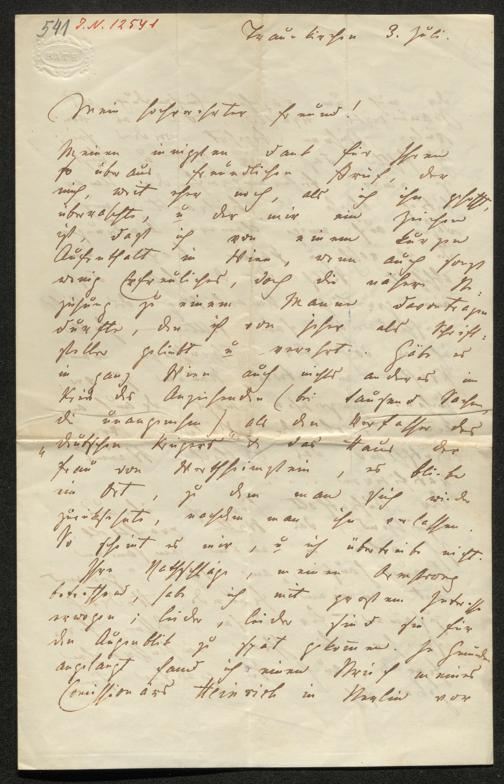 541 J.N. 12541
BATH
Traunkirchen 3. Juli.
Mein hochverehrter Freund!
Meinen innigsten Dank für Ihren
so überaus freundlichen Brief, der
mich, weit eher noch, als ich ihn gehofft,
überraschte, u der mir ein Zeichen
ist, daß ich von einem kurzen
Aufenthalt in Wien, wenn auch sonst
wenig Erfreuliches, doch die nähere Be-
ziehung zu einem Manne davontragen
durfte, den ich von jeher als Schrift-
steller geliebt u verehrt. Gäbe es
in ganz Wien auch nichts anderes im
Kreis des Anziehenden (bei tausend Sachen,
die unangenehm) als den Verfasser des
"deutschen Krieges" & das Haus der
Frau von Wertheimstein, es bliebe
ein Ort, zu dem man sich wieder
zurücksehnte, nachdem man ihn verlassen.
So scheint es mir, u ich übertreibe nicht.
Ihre Rathschläge, meinen Armstrong
betreffend, habe ich mit großem Interesse
erwogen; leider, leider sind sie für
den Augenblick zu spät gekommen. In Gmunden
angelangt fand ich einen Brief meines
Comissionärs Heinrich in Berlin vor